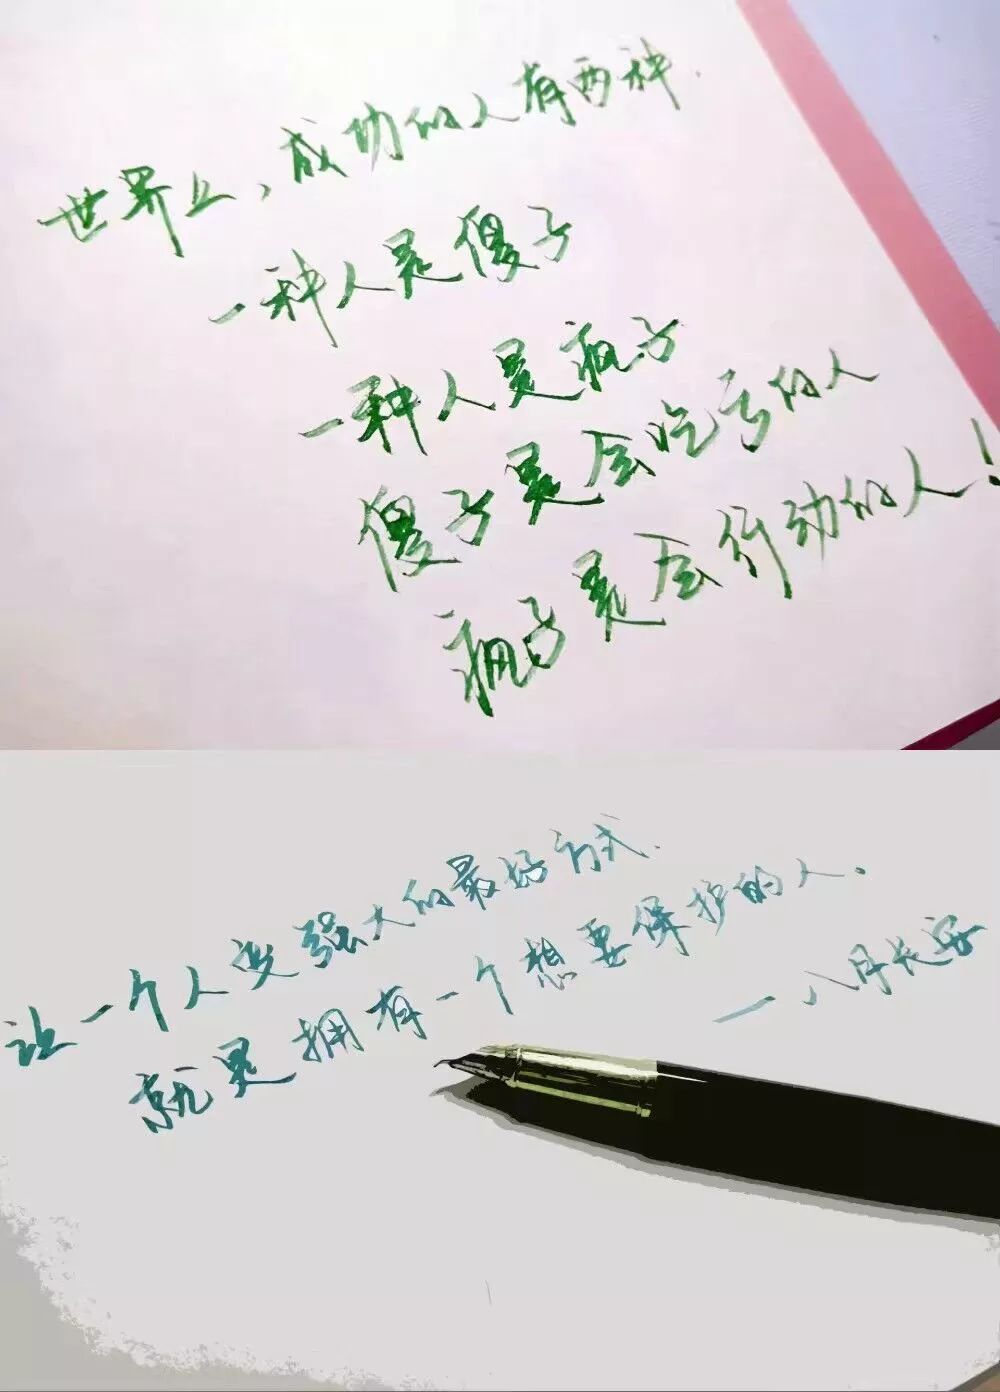 世界上，成功的人有两种.
一种人是傻子
一种人是疯子
傻子是会吃亏的人
疯子是会行动的人！
让一个人变强大的最好方式.
就是拥有一个想要保护的人.
——八月长安